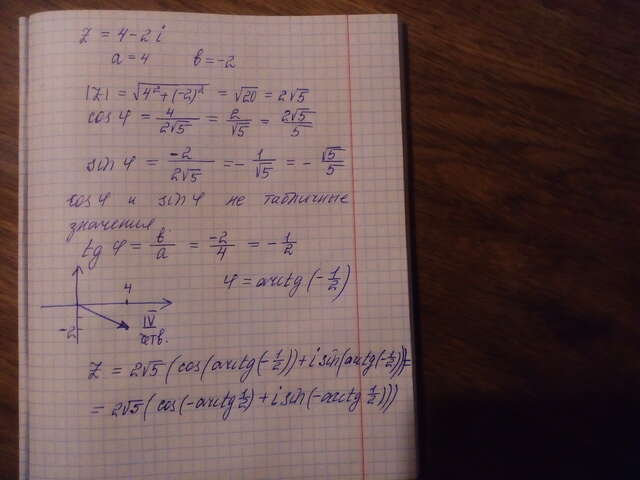 Z = 4 - 2i
a = 4 в = -2
|Z| = √(4² + (-2)²) = √20 = 2√5
cos φ = 4/(2√5) = 2/√5 = 2√5/5
sin φ = -2/(2√5) = -1/√5 = -√5/5
cos φ и sin φ не табличные
значения.
tg φ = в/a = -2/4 = -1/2
φ = arctg(-1/2)
4
-2
IV
четв.
Z = 2√5 (cos(arctg(-1/2)) + i sin(arctg(-1/2)) =
= 2√5 (cos(-arctg 1/2) + i sin(-arctg 1/2)))